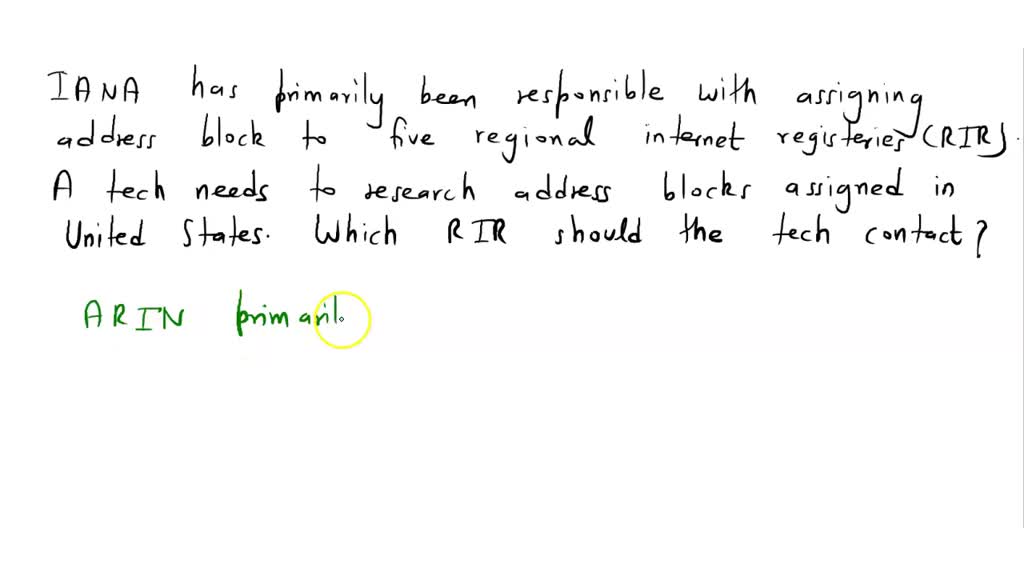 IANA has primarily been responsible with assigning
address block to five regional internet registeries (RIR).
A tech needs to research address blocks assigned in
United States. Which RIR should the tech contact?
ARIN primaril